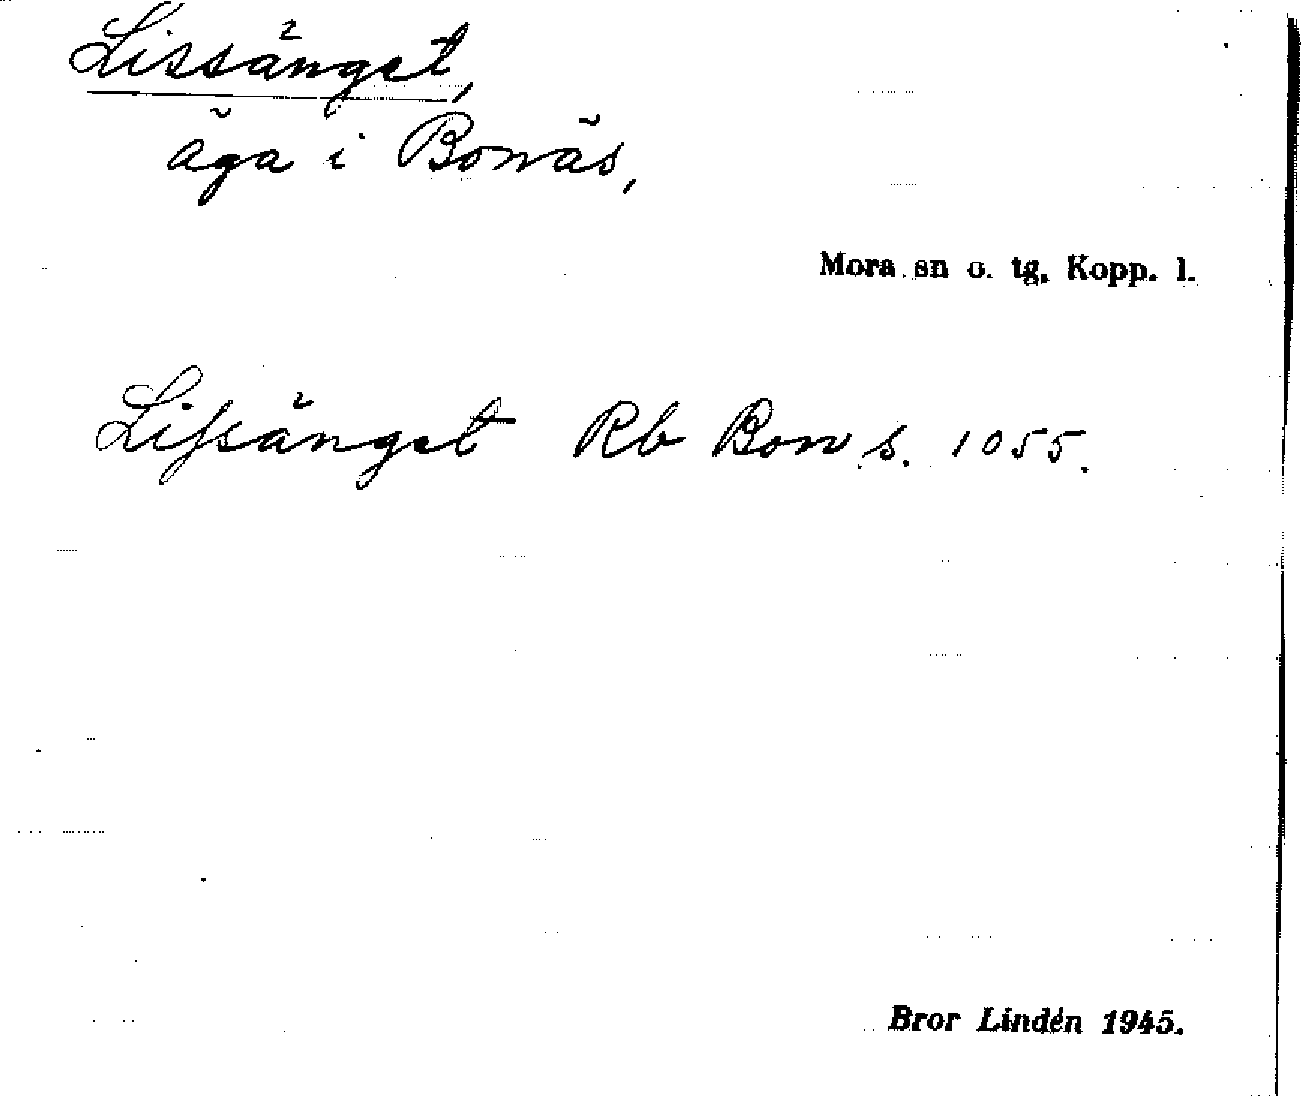 Lissänget,
äga i Bonäs,
Mora sn o. tg, Kopp. l.
Lissänget Rb Bon s. 1055.
Bror Lindén 1945.